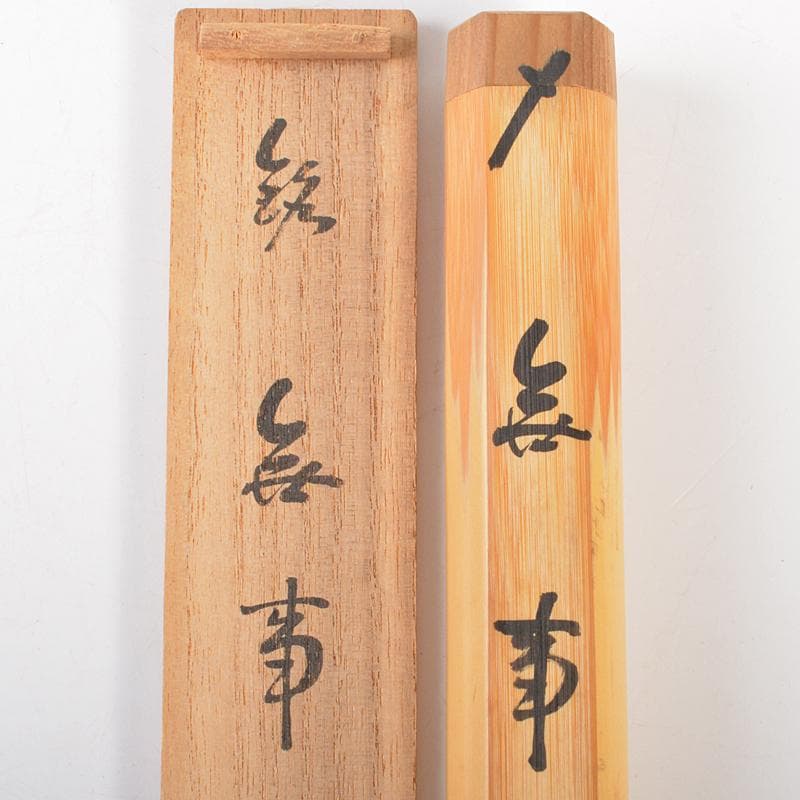 銘 無事
無事